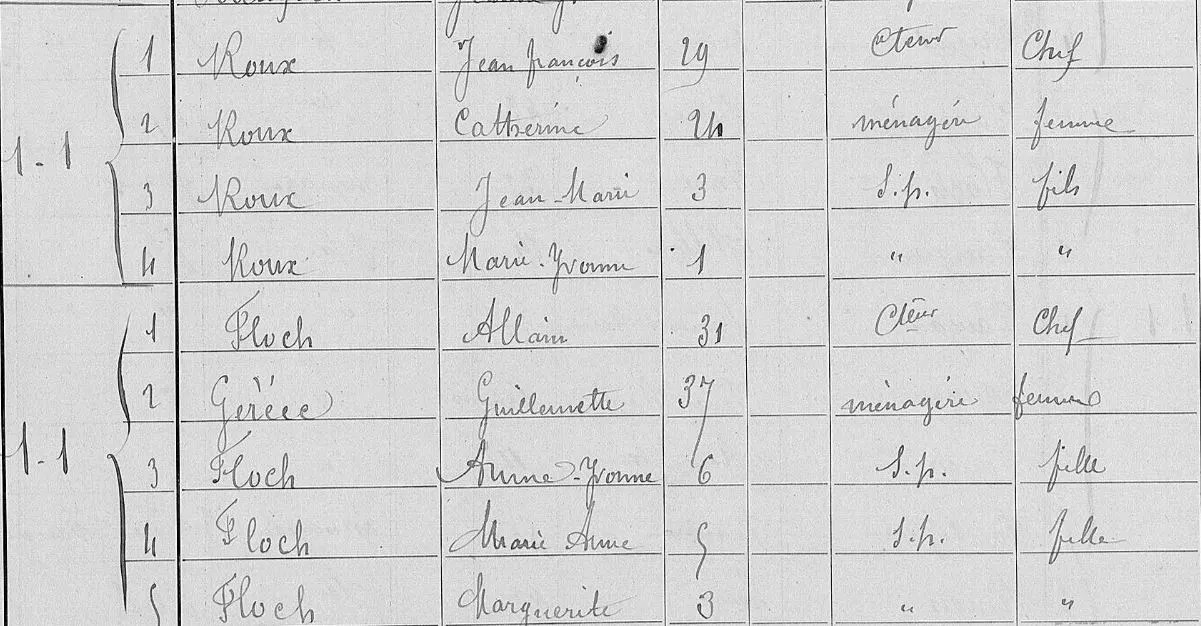 1 Roux Jean françois 29 Cteur Chef
1-1 2 Roux Catherine 24 ménagère femme
3 Roux Jean-Marie 3 S.p. fils
4 Roux Marie-Yvonne 1 " "
1 Floch Allain 31 Cteur Chef
2 Guillemette 37 ménagère femme
1-1 3 Floch Anne-Yvonne 6 S.p. fille
4 Floch Marie Anne 5 S.p. fille
5 Floch Marguerite 3 " "